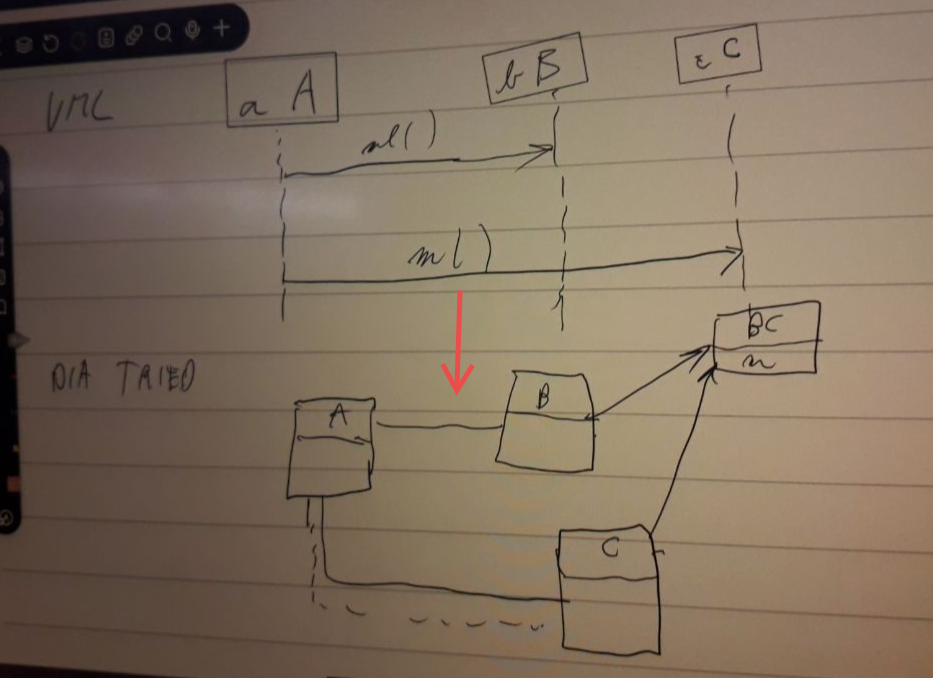 UML
a A
b B
c C
m()
m()
DIA TRIED
BC
m
A
B
C